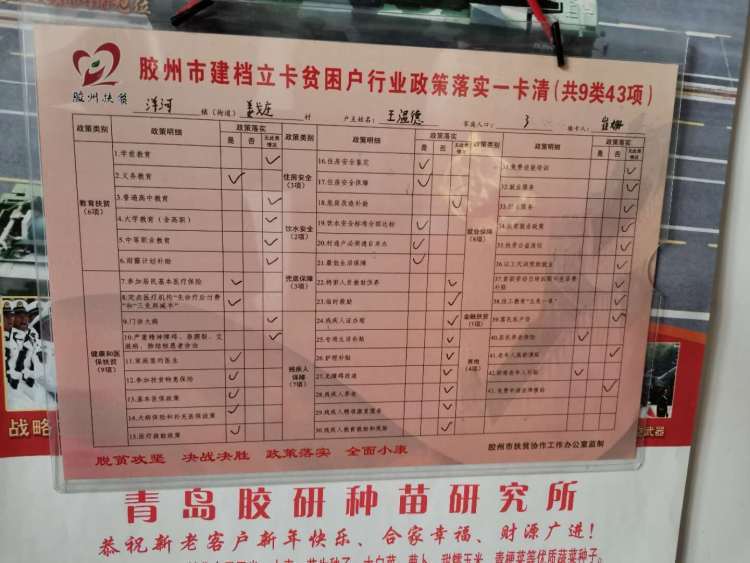 胶州市建档立卡贫困户行业政策落实一卡清(共9类43项)
胶州扶贫
洋河 镇(街道) 村 户主姓名: 王温德 家庭人口: 3 填卡人:
政策类别 政策明细 政策落实 是 否 无此类情况
教育扶贫(6项)
1.学前教育 ✓
2.义务教育 ✓
3.普通高中教育 ✓
4.大学教育(含高职) ✓
5.中等职业教育 ✓
6.雨露计划补助 ✓
健康和医保扶贫(9项)
7.参加居民基本医疗保险 ✓
8.定点医疗机构"先诊疗后付费"和"三免两减半" ✓
9.门诊大病 ✓
10.严重精神障碍、 ✓
11.家庭签约医生 ✓
12.参加扶贫特惠保险 ✓
13.基本医保政策 ✓
14.大病保险和补充医保政策 ✓
15.医疗救助政策 ✓
政策类别 政策明细 政策落实 是 否 无此类情况
住房安全(3项)
16.住房安全鉴定 ✓
17.住房安全保障 ✓
18.危房改造补助 ✓
饮水安全(2项)
19.饮水安全标准全部达标 ✓
20.村通户必须通自来水 ✓
兜底保障(3项)
21.最低生活保障 ✓
22.特困人员救助供养 ✓
23.临时救助 ✓
残疾人保障(7项)
24.残疾人证办理 ✓
25.专项生活补贴 ✓
26.护理补贴 ✓
27.无障碍改造 ✓
28.残疾人养老 ✓
29.残疾人精准康复服务 ✓
30.残疾人教育救助和奖励 ✓
政策落实 是 否 无此类情况
就业保障(8项)
31.免费技能培训 ✓
32.就业服务 ✓
33. 服务 ✓
35.扶贫公益岗位 ✓
金融扶贫(1项)
39.富民农户贷 ✓
养老(4项)
40.居民养老保险 ✓
脱贫攻坚 决战决胜 政策落实 全面小康
胶州市扶贫协作工作办公室监制
战略
武器
青岛胶研种苗研究所
恭祝新老客户新年快乐、合家幸福、财源广进!
大白菜、萝卜、甜糯玉米、青梗菜等优质蔬菜种子。